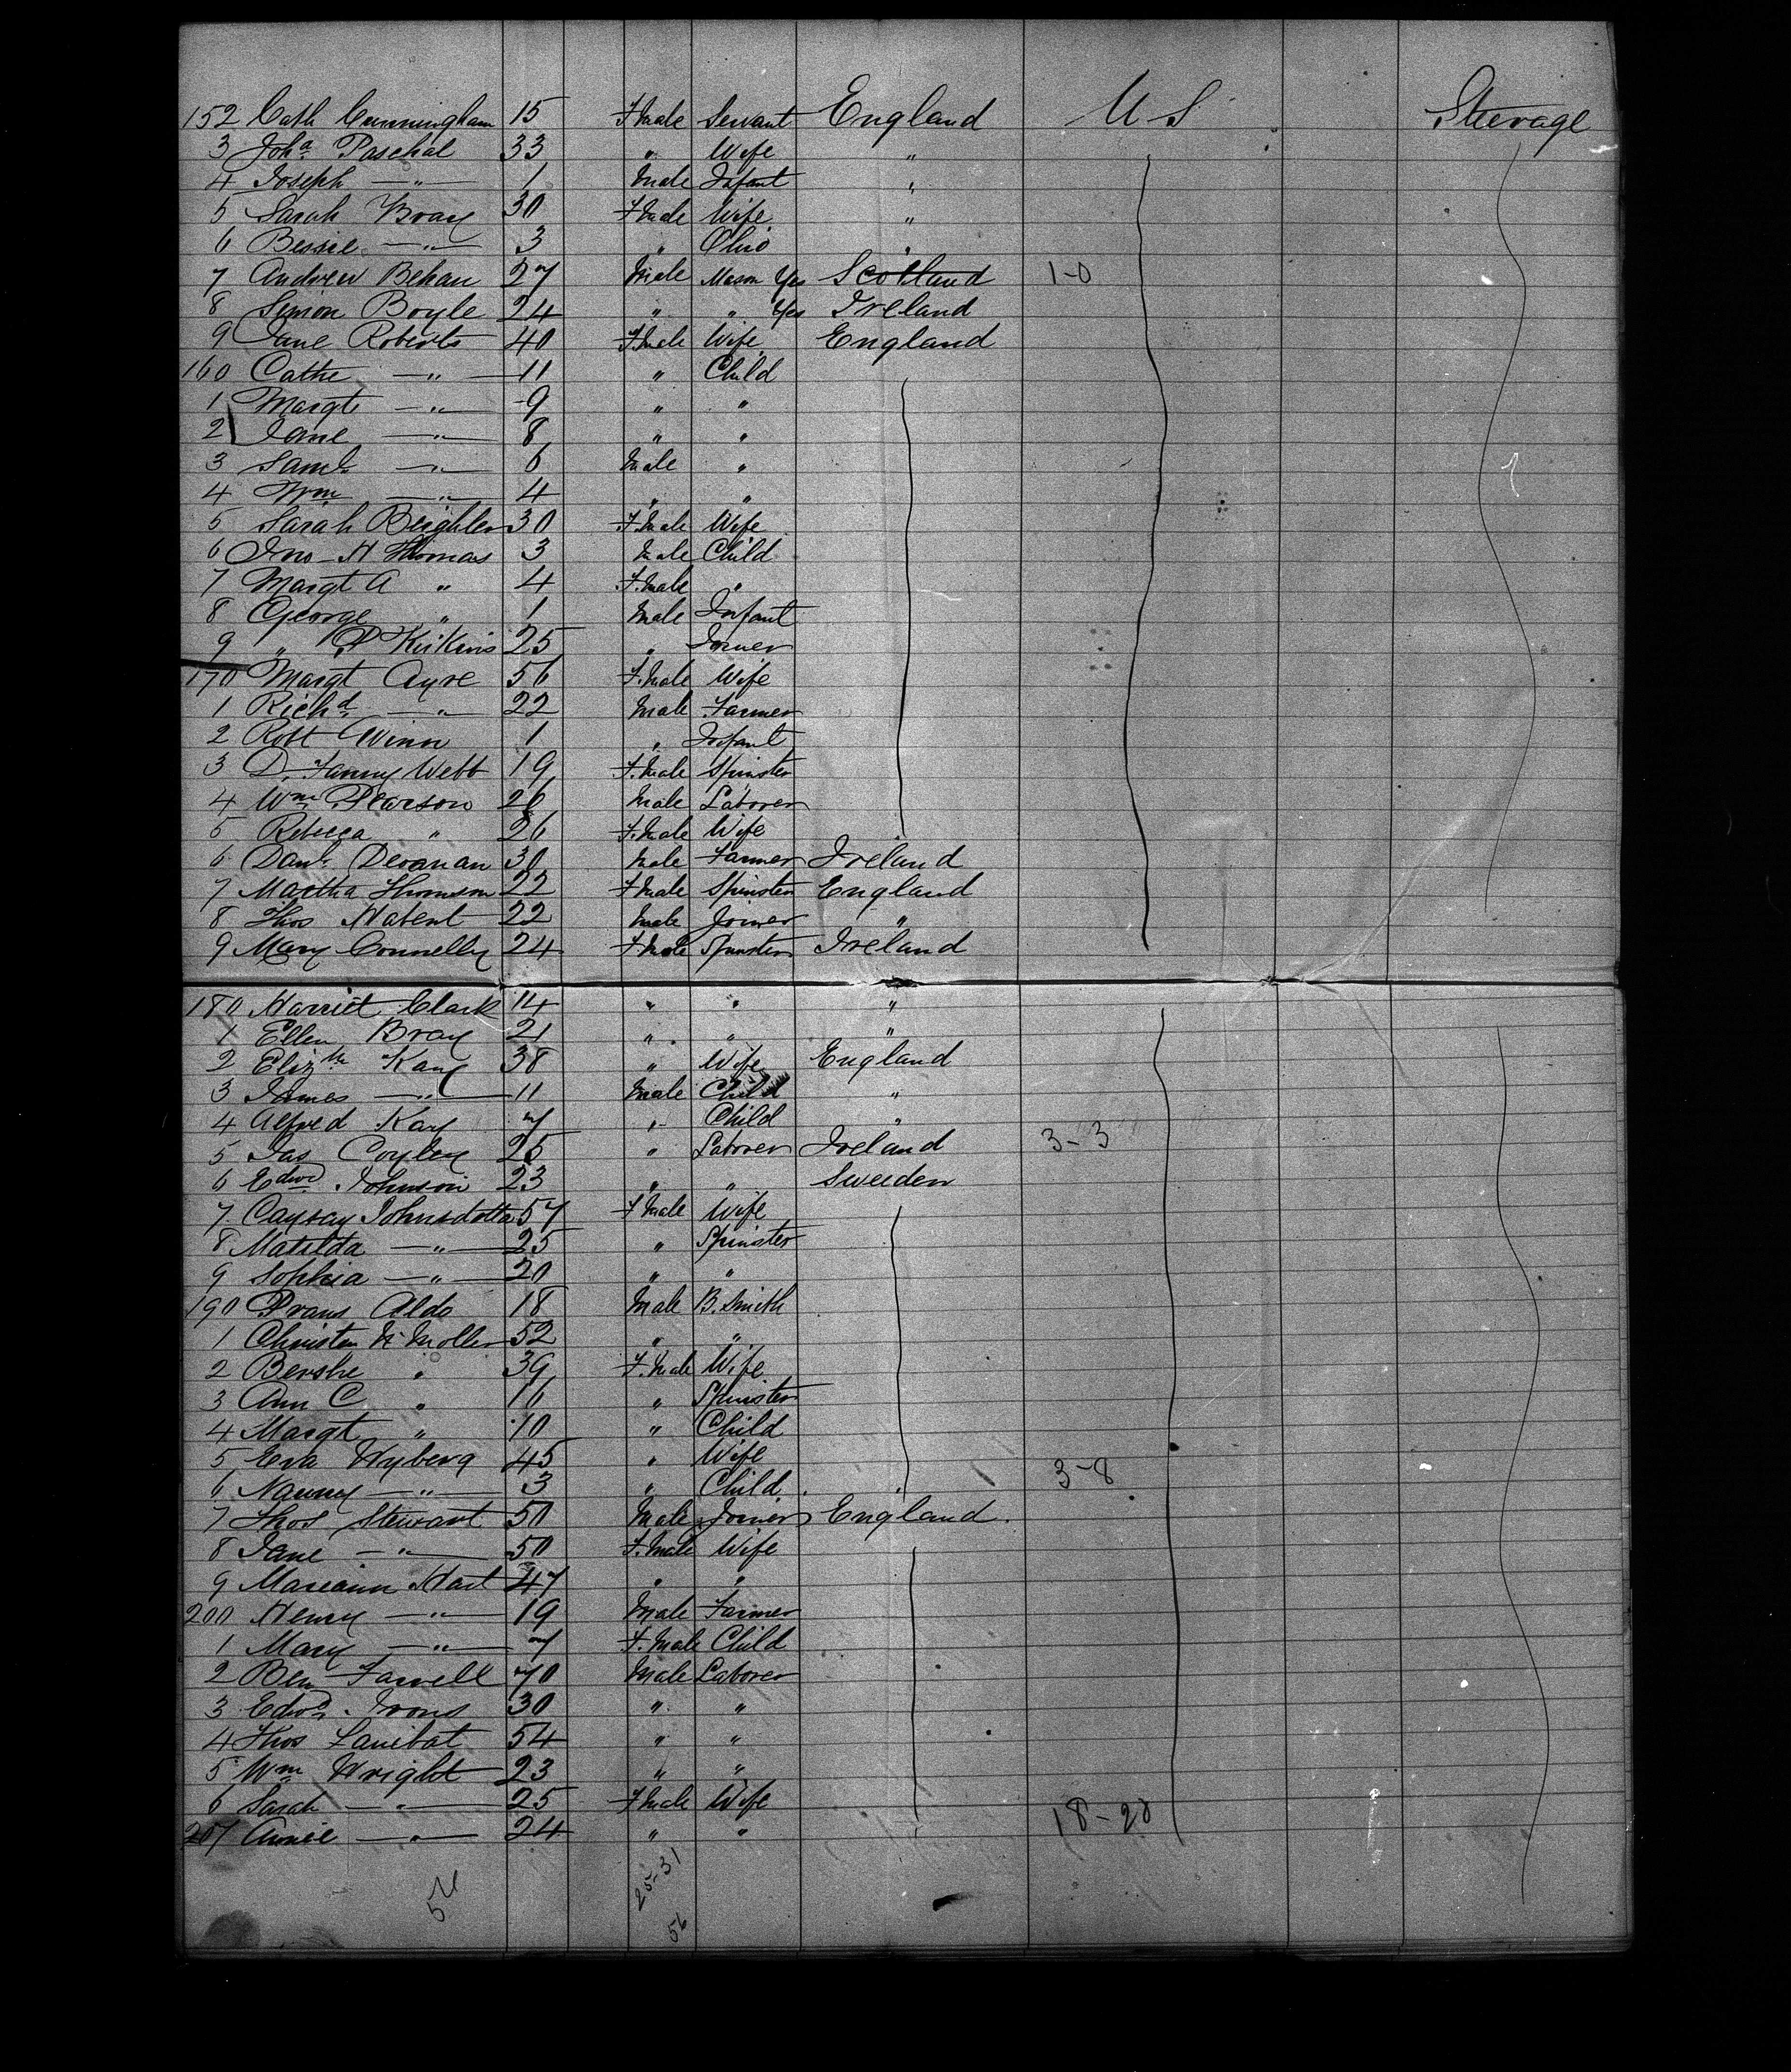 152 Cath Cunningham 15 F.Male Servant England U S Steerage
3 Joha Paschal 33 " Wife "
4 Joseph —"— 1 Male Infant "
5 Sarah Bray 30 F.Male Wife "
6 Bessie —"— 3 " "
7 Andrew Behan 27 Male Mason Yes Scotland 1-0
8 Simon Boyle 24 " " Yes Ireland
9 Jane Roberts 40 F.Male Wife England
160 Cathe —"— 11 " Child
1 Margt —"— 9 " "
2 Jane —"— 8 " "
3 Saml —"— 6 Male "
4 Wm —"— 4 " "
5 Sarah Beighler 30 F.Male Wife
6 Jno H Thomas 3 Male Child
7 Margt A " 4 F.Male "
8 George " 1 Male Infant
9 " 25 " Joiner
170 Margt Ayre 56 F.Male Wife
1 Richd —"— 22 Male Farmer
2 Robt Winn 1 " Infant
3 D. Fanny Webb 19 F.Male Spinster
4 Wm Pearson 26 Male Laborer
5 Rebecca " 26 F.Male Wife
6 Danl Devanan 30 Male Farmer Ireland
7 Martha Thomson 22 F.Male Spinster England
8 Thos Habent 22 Male Joiner "
9 Mary Connelly 24 F.Male Spinster Ireland
180 Harriet Clark 14 " " "
1 Ellen Bray 21 " " "
2 Elizth Kay 38 " Wife England
3 James —"— 11 Male Child "
4 Alfred Kay 7 " Child "
5 Jas Coyley 25 " Laborer Ireland 3-3
6 Edwd Johnson 23 " " Sweden
7 Caysay Johnsdotta 57 F.Male Wife
8 Matilda —"— 25 " Spinster
9 Sophia —"— 20 " "
190 Frans Aldo 18 Male B. Smith
1 Christen N Moller 52 " "
2 " 39 F.Male Wife
3 Ann C " 16 " Spinster
4 Margt " 10 " Child
5 Eva Wyberg 45 " Wife
6 Nanny —"— 3 " Child 3-8
7 Thos Stewart 50 Male Joiner England
8 Jane —"— 50 F.Male Wife
9 Mariann Hart 47 " "
200 Henry —"— 19 Male Farmer
1 Mary —"— 7 F.Male Child
2 Ben Farrell 70 Male Laborer
3 Edwd Irons 30 " "
4 Thos Lanibat 54 " "
5 Wm Wright 23 " "
6 Sarah —"— 25 F.Male Wife
207 Annie —"— 24 " " 18-20
25-31
56